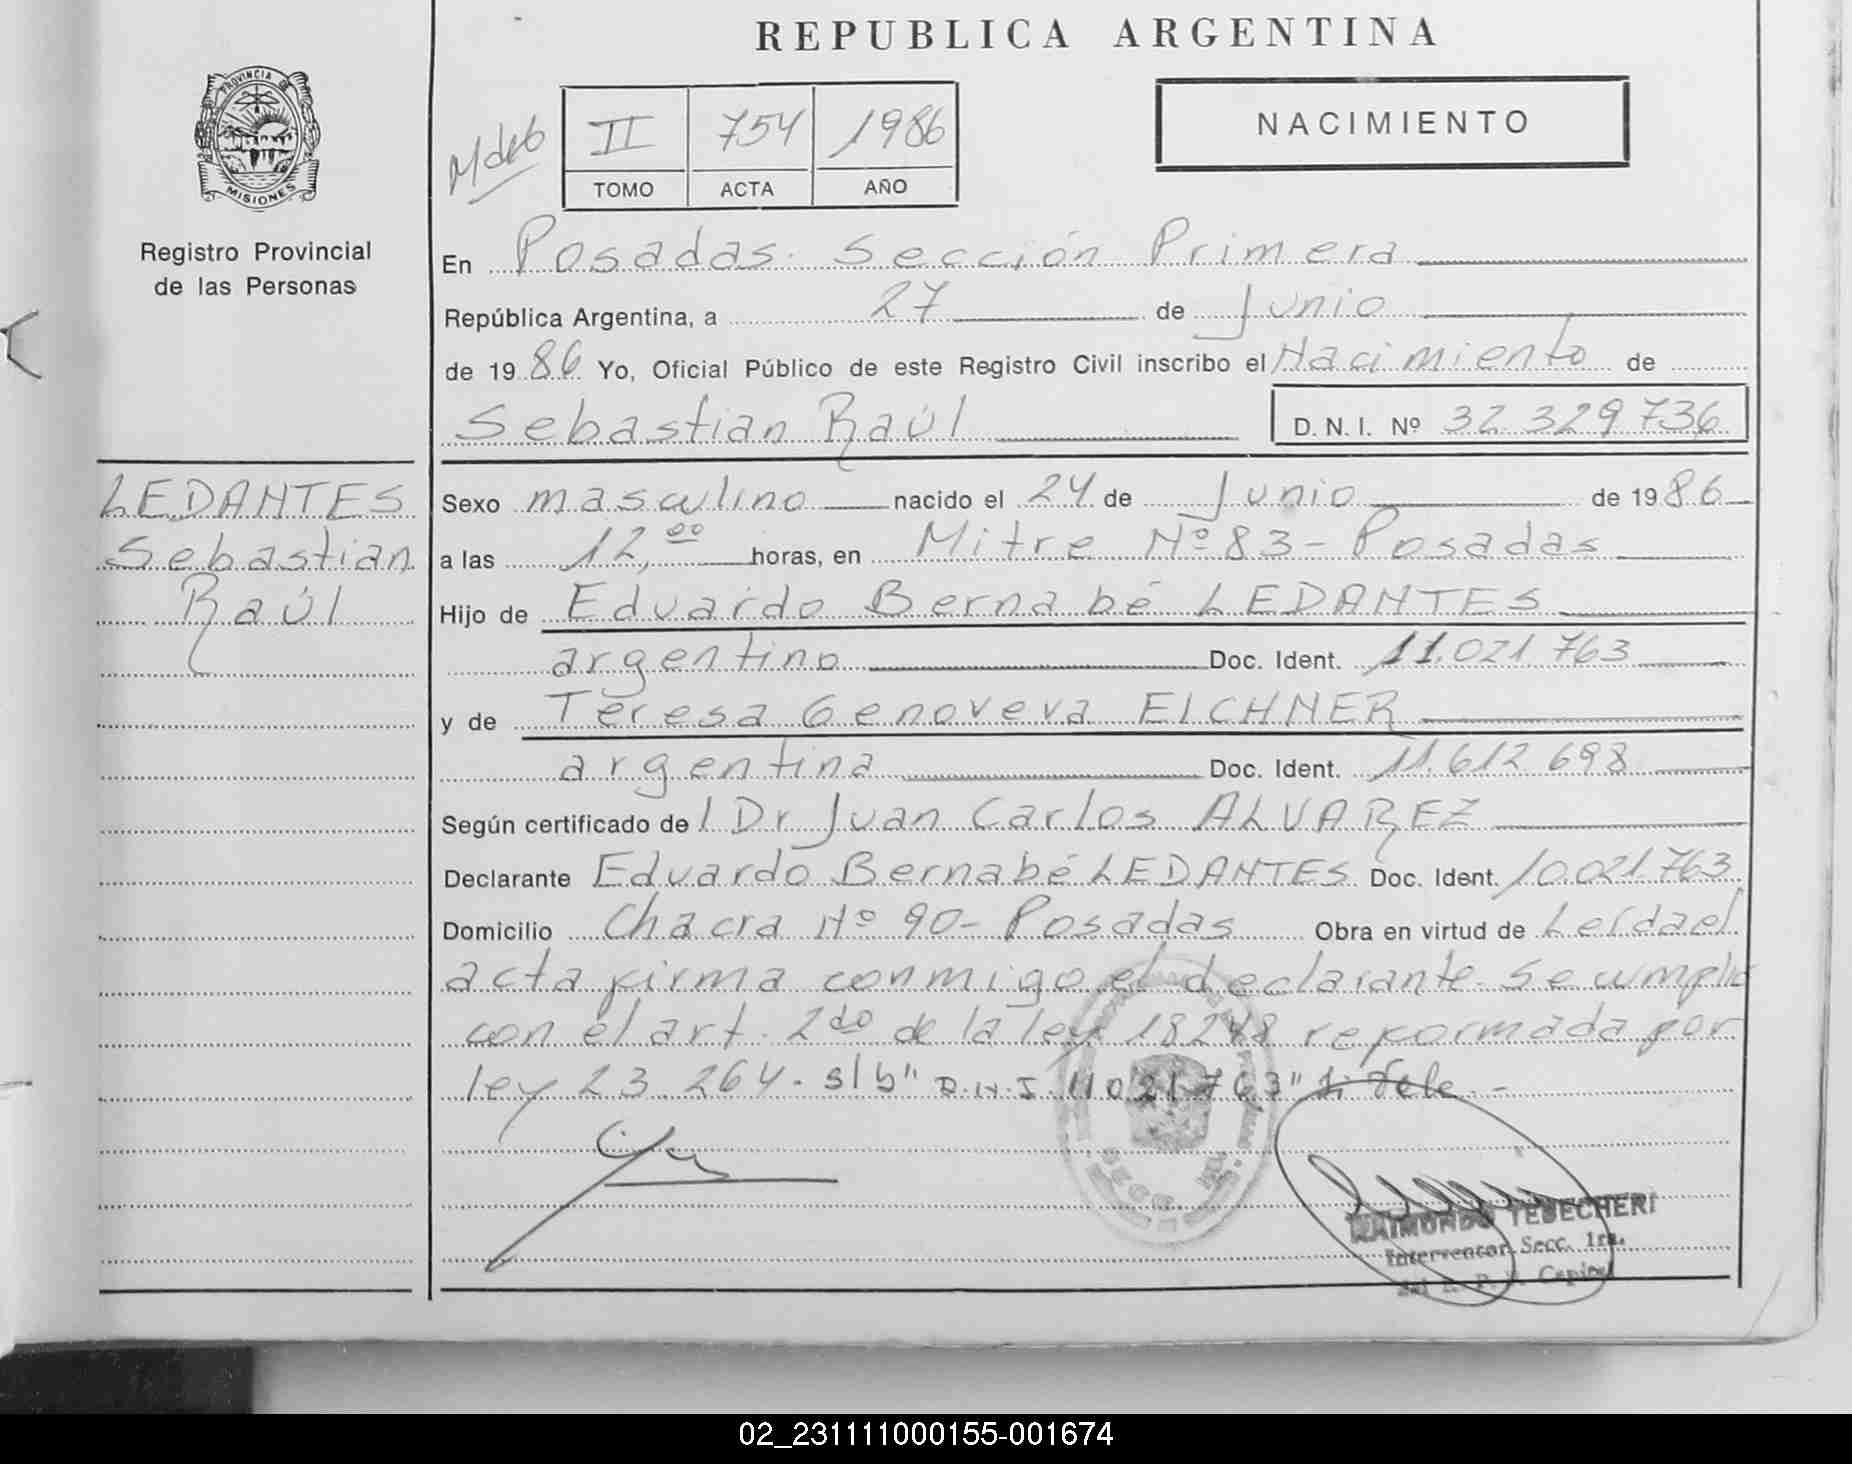 REPUBLICA ARGENTINA
PROVINCIA DE
MISIONES
Registro Provincial
de las Personas
II 754 1986
TOMO ACTA AÑO
NACIMIENTO
En Posadas. Sección Primera
República Argentina, a 27 de Junio
de 1986 Yo, Oficial Público de este Registro Civil inscribo el Nacimiento de
Sebastian Raúl D.N.I. Nº 32 329 736
LEDANTES
Sebastian
Raúl
Sexo masculino nacido el 24 de Junio de 1986
a las 12,00 horas, en Mitre Nº 83 - Posadas
Hijo de Eduardo Bernabé LEDANTES
argentino Doc. Ident. 11.021.763
y de Teresa Genoveva EICHNER
argentina Doc. Ident. 11.612.698
Según certificado del Dr Juan Carlos ALVAREZ
Declarante Eduardo Bernabé LEDANTES Doc. Ident. 10.021.763
Domicilio Chacra Nº 90 - Posadas Obra en virtud de Leída el
acta firma conmigo el declarante. Se cumplio
con el art. 2do de la ley 18248 reformada por
ley 23.264. s/b" D.N.I. 11021763" Vale. -
RAIMUNDO TEBECHERI
Interventor Secc. 1ra.
del R. P. P. Capital
02_231111000155-001674